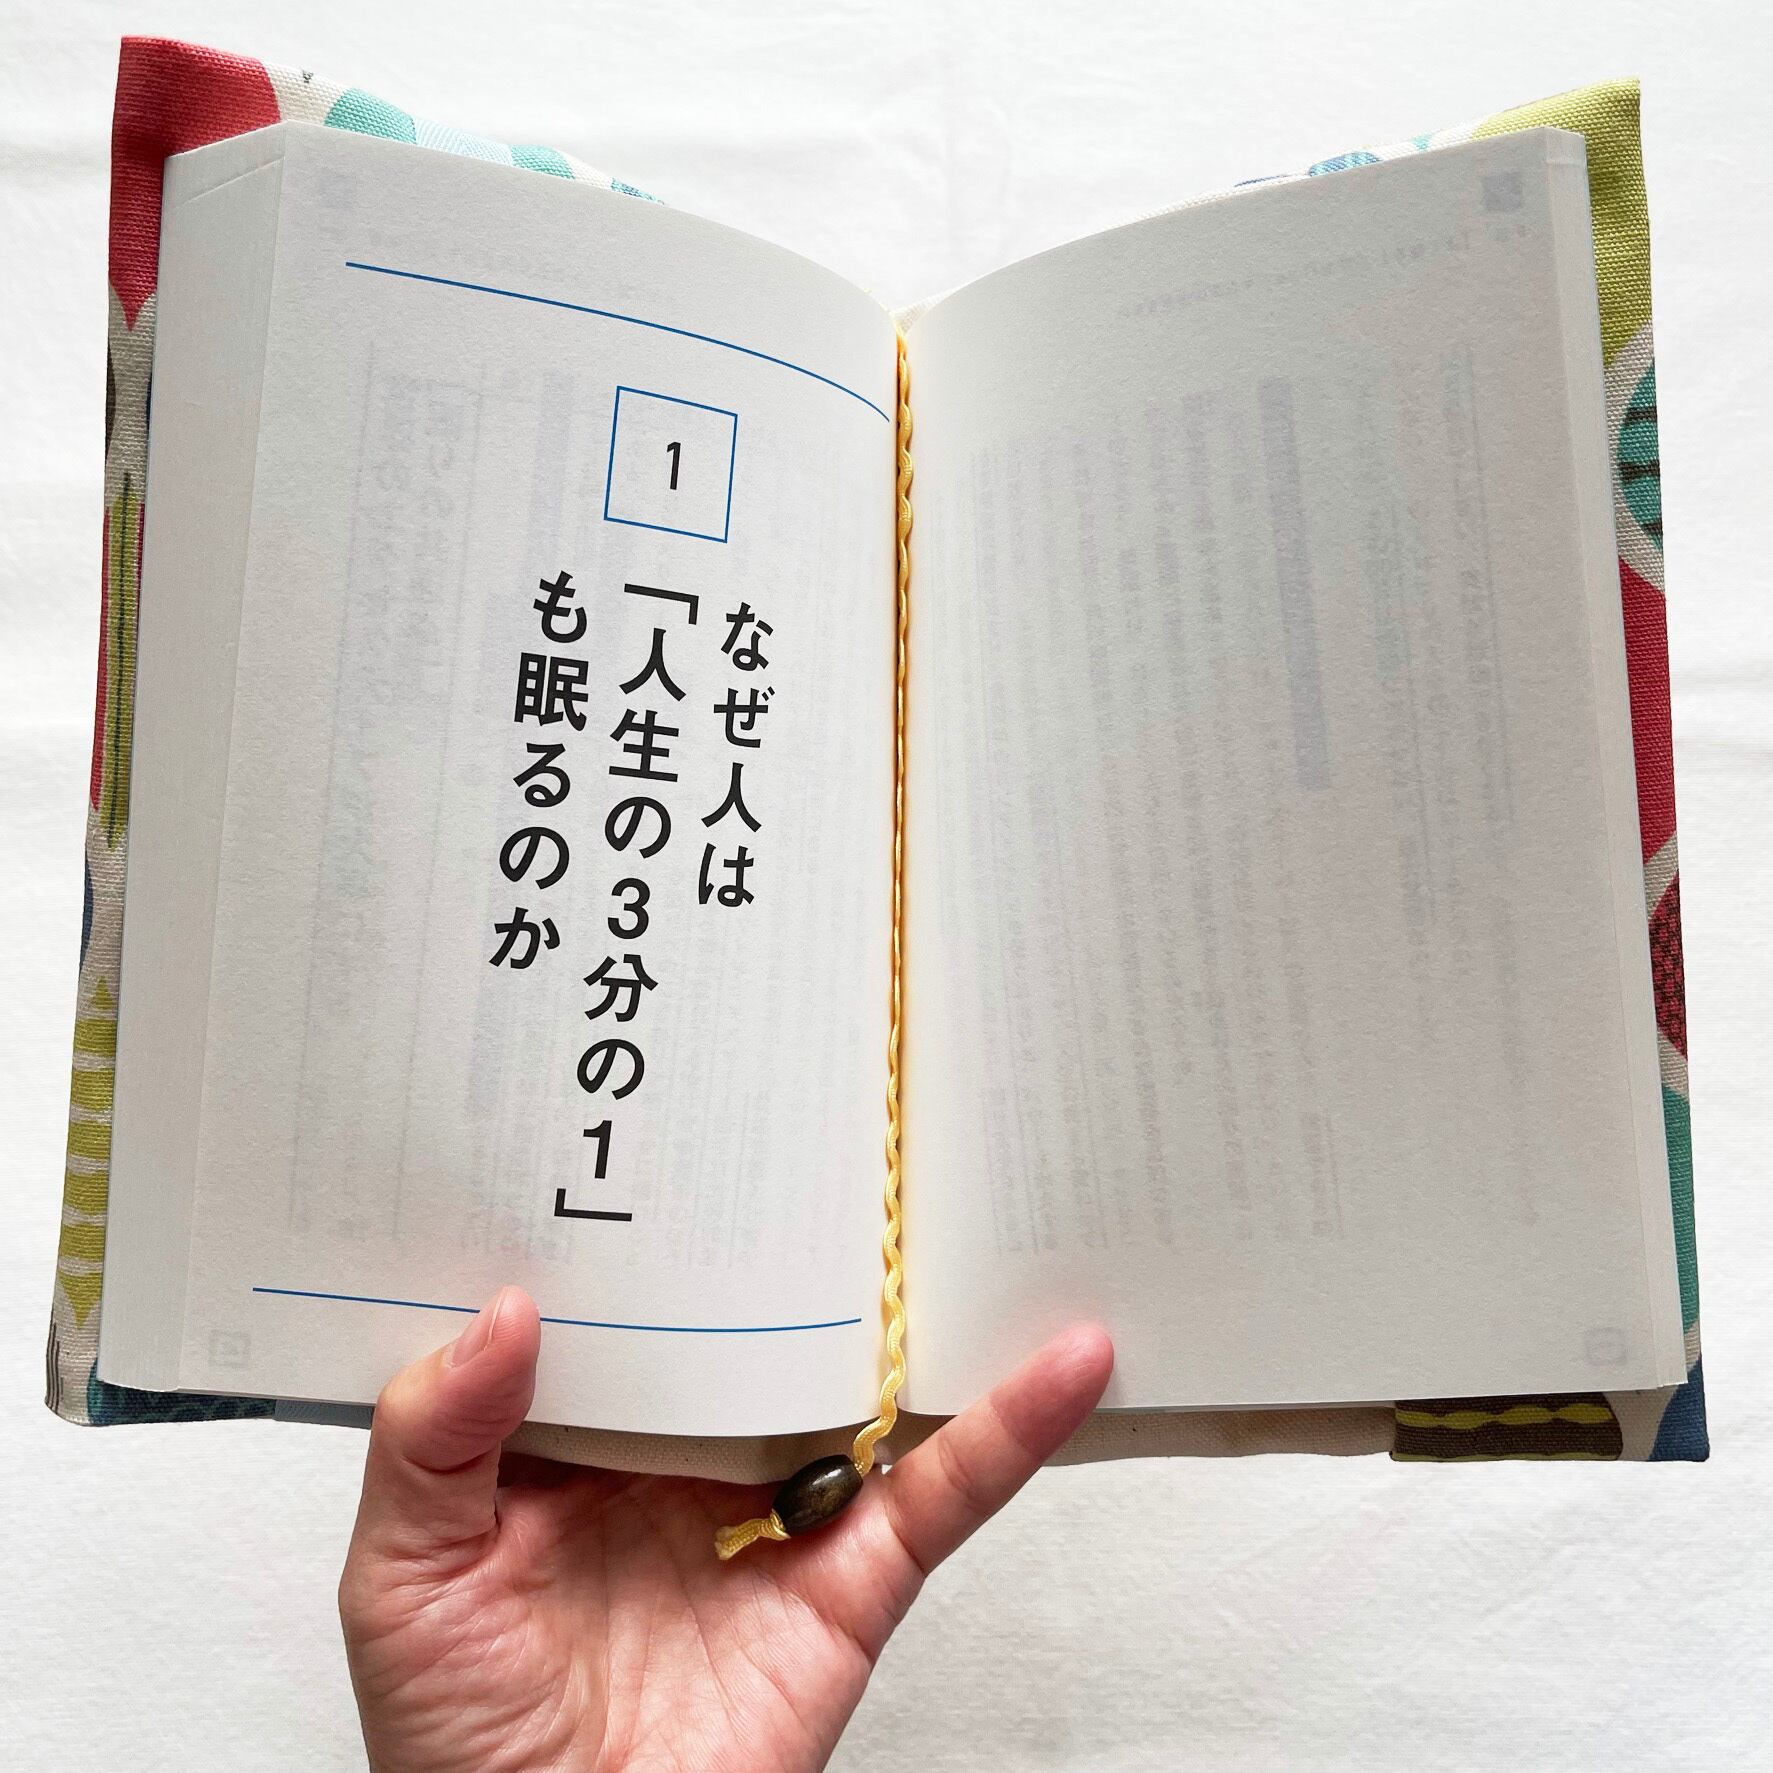 1
なぜ人は
「人生の3分の1」
も眠るのか